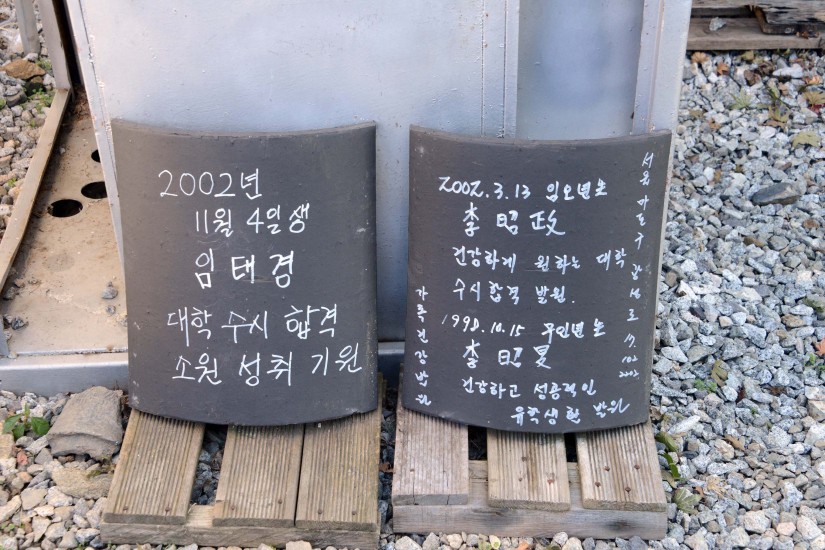 2002년
11월 4일생
임태경
대학 수시 합격
소원 성취 기원
2002.3.13 임오년生
李昭政
건강하게 원하는 대학
수시합격 발원.
1998.10.15 무인년生
李昭旻
건강하고 성공적인
유학생활 발원
가족건강발원
서울 마포구